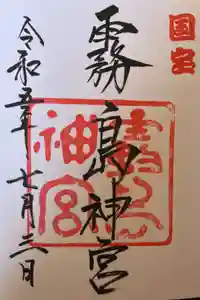 国宝
霧島神宮
令和五年七月三日
霧島神宮